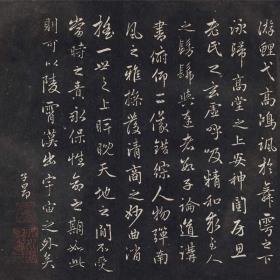 游鲤弋高鴻諷於舞雩之下
詠歸高堂之上安神閨房思
老氏之玄虛呼吸精和求至人
之髣髴與達者數子論道講
書俯仰二儀錯綜人物彈南
風之雅操發清商之妙曲逍
搖一世之上睥睨天地之間不受
當時之責永保性命之期如此
則可以陵霄漢出宇宙之外矣
子昂